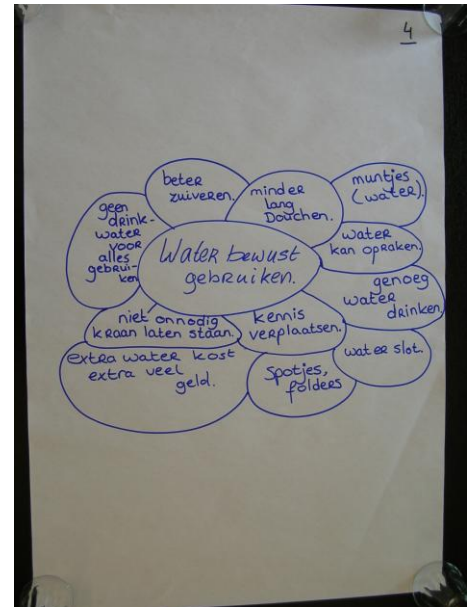 4
beter
zuiveren.
minder
lang
Douchen.
muntjes
(water).
geen
drink-
water
voor
alles
gebrui-
ken
Water bewust
gebruiken.
water
kan opraken.
genoeg
water
drinken.
niet onnodig
kraan laten staan.
kennis
verplaatsen.
water slot.
extra water kost
extra veel
geld.
Spotjes,
folders